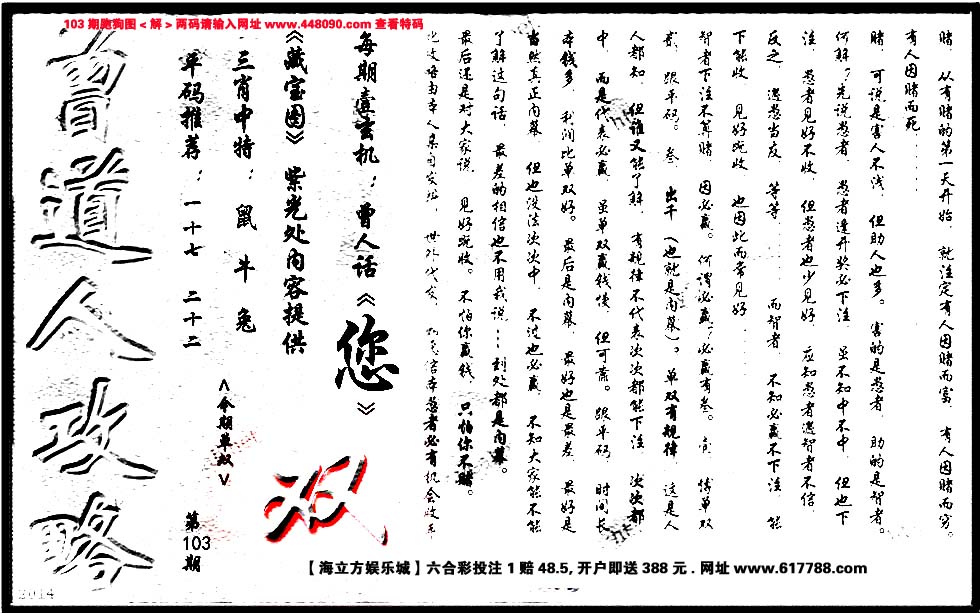 103 期跑狗图 < 解 > 两码请输入网址 www.448090.com 查看特码
赌， 从有赌的第一天开始， 就注定有人因赌而富， 有人因赌而穷。
有人因赌而死......
赌， 可说是害人不浅， 但助人也多。 害的是愚者， 助的是智者。
何解？先说愚者， 愚者逢开奖必下注， 虽不知中不中， 但也下
注， 愚者见好不收， 但愚者也少见好， 应知愚者遇智者不信，
反之， 遇愚当友， 等等...... 而智者， 不知必赢不下注， 能
下能收， 见好就收， 也因此而常见好......
智者下注不算赌， 因必赢。 何谓必赢？必赢有叁。 壹， 博单双
贰， 跟平码。 叁， 出千 （也就是内幕）。 单双有规律， 这是人
人都知， 但谁又能了解， 有规律不代表次次都能下注， 次次都
中， 而是代表必赢， 虽单双赢钱慢， 但可靠。 跟平码， 时间长
本钱多， 利润比单双好。 最后是内幕， 最好也是最差， 最好是
当然真正内幕， 但也没法次次中， 不过也必赢， 不知大家能不能
了解这句话， 最差的相信也不用我说…到处都是内幕。
最后还是对大家说， 见好就收。 不怕你赢钱， 只怕你不赌。
每期真玄机：曾人话《您》
《藏宝图》 紫光处内容提供
三肖中特： 鼠 牛 兔
平码推荐： 一十七 二十二
<今期单双>
双
第
103
期
曾道人攻略
2014
【海立方娱乐城】六合彩投注 1 赔 48.5, 开户即送 388 元 . 网址 www.617788.com